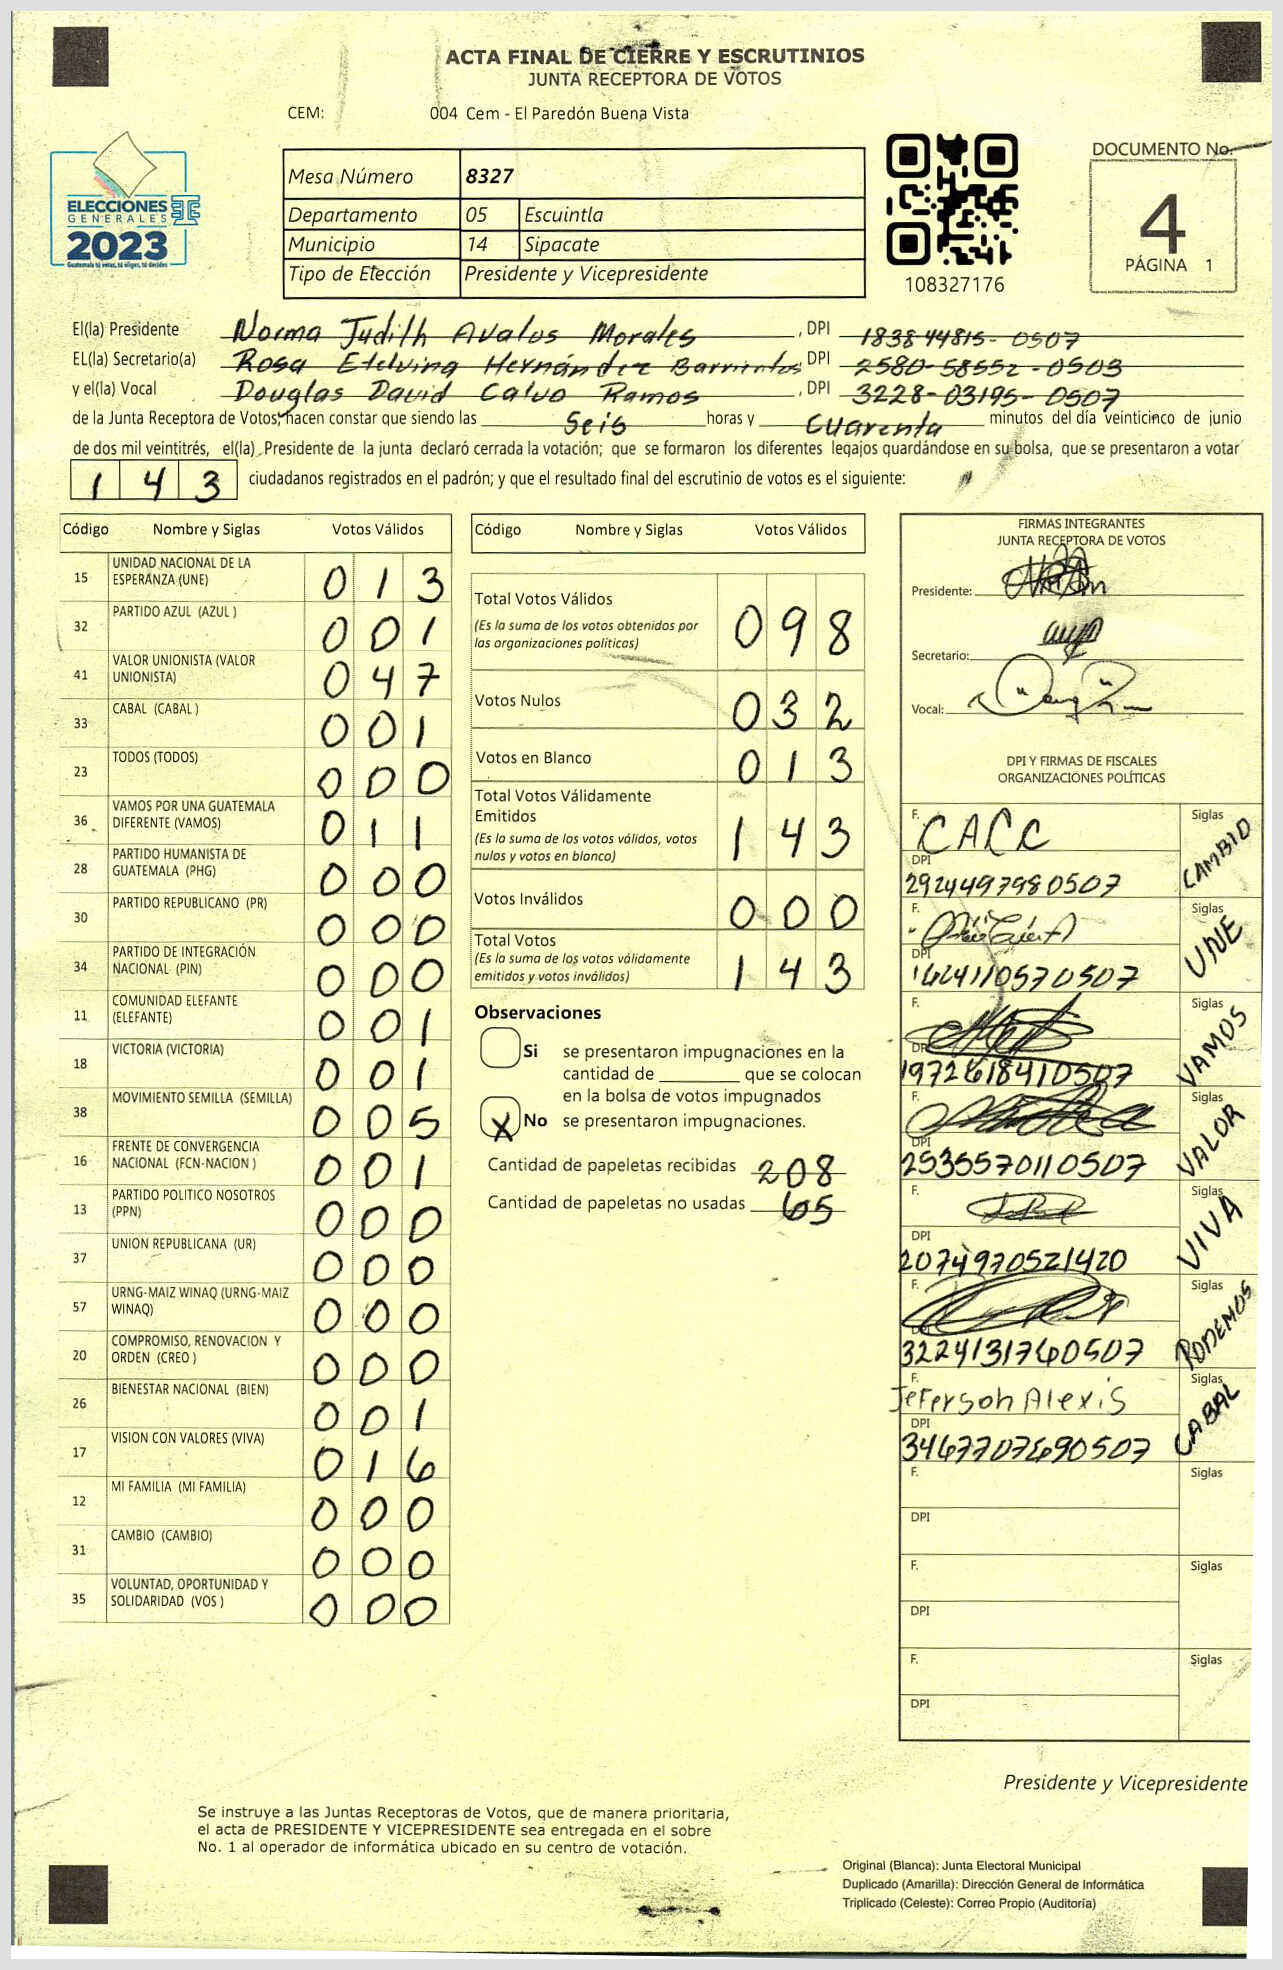 ACTA FINAL DE CIERRE Y ESCRUTINIOS
JUNTA RECEPTORA DE VOTOS
CEM: 004 Cem - El Paredón Buena Vista
ELECCIONES
GENERALES
2023
Guatemala tú votas, tú eliges, tú decides
Mesa Número 8327
Departamento 05 Escuintla
Municipio 14 Sipacate
Tipo de Elección Presidente y Vicepresidente
108327176
DOCUMENTO No.
4
PÁGINA 1
El(la) Presidente Norma Judith Avalos Morales, DPI 1838 44815- 0507
EL(la) Secretario(a) Rosa Etelvina Hernández Barrientos DPI 2580-58552-0503
y el(la) Vocal Douglas David Calvo Ramos, DPI 3228-03195-0507
de la Junta Receptora de Votos, hacen constar que siendo las Seis horas y Cuarenta minutos del día veinticinco de junio
de dos mil veintitrés, el(la) Presidente de la junta declaró cerrada la votación; que se formaron los diferentes legajos guardándose en su bolsa, que se presentaron a votar
1 4 3 ciudadanos registrados en el padrón; y que el resultado final del escrutinio de votos es el siguiente:
Código Nombre y Siglas Votos Válidos
15 UNIDAD NACIONAL DE LA
ESPERANZA (UNE) 0 1 3
32 PARTIDO AZUL (AZUL ) 0 0 1
41 VALOR UNIONISTA (VALOR
UNIONISTA) 0 4 7
33 CABAL (CABAL ) 0 0 1
23 TODOS (TODOS) 0 0 0
36 VAMOS POR UNA GUATEMALA
DIFERENTE (VAMOS) 0 1 1
28 PARTIDO HUMANISTA DE
GUATEMALA (PHG) 0 0 0
30 PARTIDO REPUBLICANO (PR) 0 0 0
34 PARTIDO DE INTEGRACIÓN
NACIONAL (PIN) 0 0 0
11 COMUNIDAD ELEFANTE
(ELEFANTE) 0 0 1
18 VICTORIA (VICTORIA) 0 0 1
38 MOVIMIENTO SEMILLA (SEMILLA) 0 0 5
16 FRENTE DE CONVERGENCIA
NACIONAL (FCN-NACION ) 0 0 1
13 PARTIDO POLITICO NOSOTROS
(PPN) 0 0 0
37 UNION REPUBLICANA (UR) 0 0 0
57 URNG-MAIZ WINAQ (URNG-MAIZ
WINAQ) 0 0 0
20 COMPROMISO, RENOVACION Y
ORDEN (CREO ) 0 0 0
26 BIENESTAR NACIONAL (BIEN) 0 0 1
17 VISION CON VALORES (VIVA) 0 1 6
12 MI FAMILIA (MI FAMILIA) 0 0 0
31 CAMBIO (CAMBIO) 0 0 0
35 VOLUNTAD, OPORTUNIDAD Y
SOLIDARIDAD (VOS ) 0 0 0
Código Nombre y Siglas Votos Válidos
Total Votos Válidos 0 9 8
(Es la suma de los votos obtenidos por
las organizaciones políticas)
Votos Nulos 0 3 2
Votos en Blanco 0 1 3
Total Votos Válidamente
Emitidos 1 4 3
(Es la suma de los votos válidos, votos
nulos y votos en blanco)
Votos Inválidos 0 0 0
Total Votos 1 4 3
(Es la suma de los votos válidamente
emitidos y votos inválidos)
Observaciones
Si se presentaron impugnaciones en la
cantidad de que se colocan
en la bolsa de votos impugnados
X No se presentaron impugnaciones.
Cantidad de papeletas recibidas 208
Cantidad de papeletas no usadas 65
FIRMAS INTEGRANTES
JUNTA RECEPTORA DE VOTOS
Presidente:
Secretario:
Vocal:
DPI Y FIRMAS DE FISCALES
ORGANIZACIONES POLÍTICAS
F. CACC Siglas CAMBIO
DPI
2924497980507
F. Siglas UNE
DPI
1624110570507
F. Siglas VAMOS
DPI
1972618410507
F. Siglas VALOR
DPI
2535570110507
F. Siglas VIVA
DPI
2074970521420
F. Siglas PODEMOS
DPI
3224131760507
F. Jeferson Alexis Siglas CABAL
DPI
3467707690507
F. Siglas
DPI
F. Siglas
DPI
F. Siglas
DPI
Presidente y Vicepresidente
Se instruye a las Juntas Receptoras de Votos, que de manera prioritaria,
el acta de PRESIDENTE Y VICEPRESIDENTE sea entregada en el sobre
No. 1 al operador de informática ubicado en su centro de votación.
Original (Blanca): Junta Electoral Municipal
Duplicado (Amarilla): Dirección General de Informática
Triplicado (Celeste): Correo Propio (Auditoría)